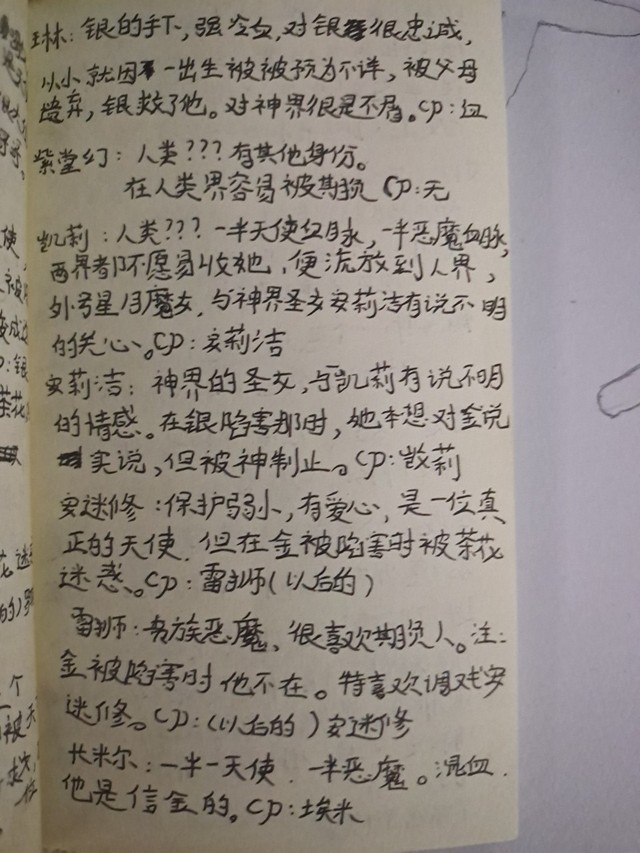 琳：银的手下，强冷血，对银很忠诚，
从小就因一出生被被预为不详，被父母
遗弃，银救了他。对神界很是不屑。CP：血
紫堂幻：人类？？？有其他身份。
在人类界容易被欺损 CP：无
凯莉：人类？？？一半天使血脉，一半恶魔血脉，
两界都不愿易收她，便流放到人界，
外号星月魔女，与神界圣女安莉洁有说不明
的关心。CP：安莉洁
安莉洁：神界的圣女，与凯莉有说不明
的情感。在银陷害那时，她本想对金说
实说，但被神制止。CP：凯莉
安迷修：保护弱小，有爱心，是一位真
正的天使．但在金被陷害时被茶花
迷惑。CP：雷狮（以后的）
雷狮：贵族恶魔，很喜欢欺损人。注：
金被陷害时他不在。特喜欢调戏安
迷修。CP：（以后的）安迷修
卡米尔：一半一天使．一半恶魔。混血．
他是信金的。CP：埃米